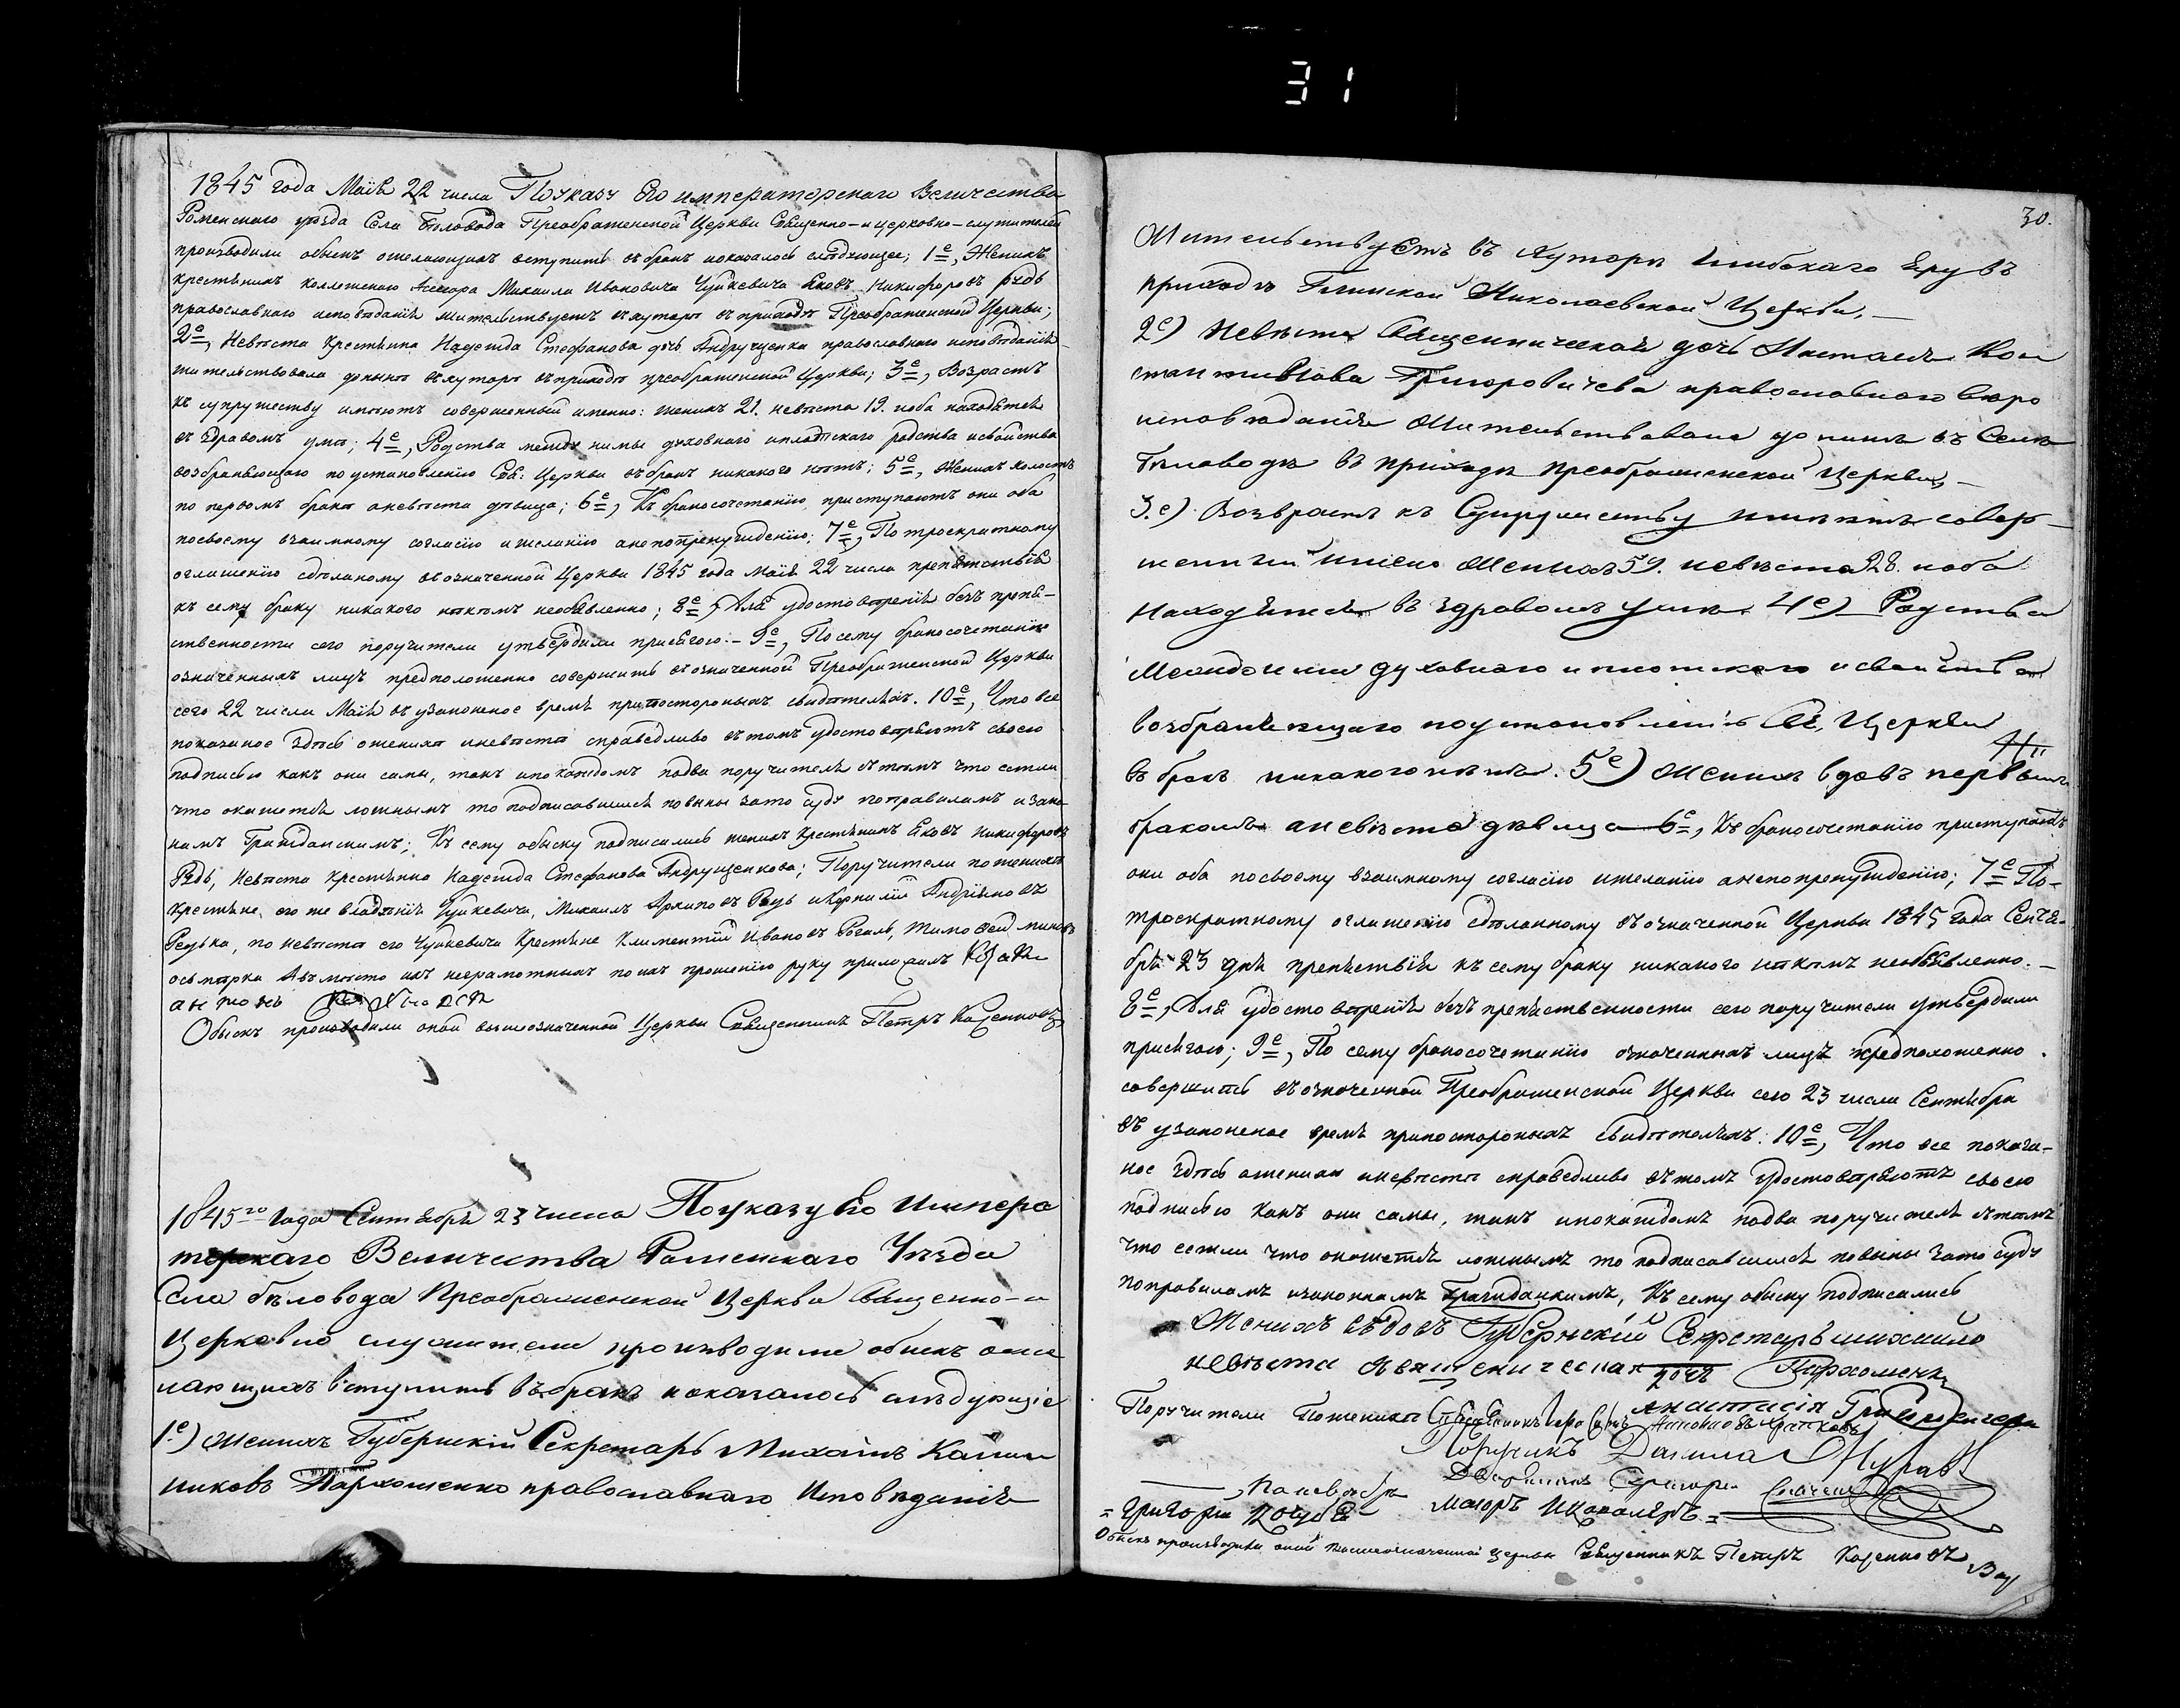 31
1845 года Маія 22 числа По указу Его императорскаго Величества
Роменскаго уѣзда Села Бѣловода Преображенской Церкви Священно-и церковно-служители
производили обыскъ о желающихъ вступить въ бракъ и оказалось слѣдующее; 1е, Женихъ
крестьянинъ коллежскаго Асессора Михаила Ивановича Чуйкевича Яковъ Никифоровъ рѣдь
православнаго исповѣданія жительствуетъ въ хуторѣ въ приходѣ Преображенской Церкви;
2е, Невѣста крестьянка Надежда Стефанова дочь Андрущенка православнаго исповѣданія
жительствовала донынѣ въ хуторѣ въ приходѣ преображенской Церкви; 3е, Возрастъ
къ супружеству имѣютъ совершенный именно: женихъ 21. невѣста 19. и оба находятся
въ здравомъ умѣ; 4е, Родства между ними духовнаго и плотскаго родства и свойства
возбраняющаго по установленію Свя: Церкви въ бракъ никакого нѣтъ; 5е, Женихъ холостъ
по первомъ бракѣ а невѣста дѣвица; 6е, Къ бракосочетанію приступаютъ они оба
по своему взаимному согласію и желанію а не по принужденію; 7е, По троекратному
оглашенію сдѣланому въ означенной Церкви 1845 года маія 22 числа препятствія
къ сему браку никакого никѣмъ необявленно; 8е, Для удостовѣренія безъ препя-
тственности сего поручители утвердили присягою.- 9е, По сему бракосочетаніе
означенныхъ лицъ предположенно совершить въ означенной Преображенской Церкви
сего 22 числа Маія въ узаконеное время при постороныхъ свидѣтеляхъ. 10е, Что все
показаное здѣсь о женихѣ и невѣстѣ справедливо въ томъ удостовѣряютъ своею
подписью какъ они сами, такъ и по каждомъ по два поручителя съ тѣмъ что естли
что окажется ложнымъ то подписавшиеся повины за то суду по правиламъ и зако-
намъ Гражданскимъ; Къ сему обыску подписались женихъ крестьянинъ Яковъ Никифоровъ
Рѣдь, Невѣста крестьянка Надежда Стефанова Андрущенкова; Поручители по женихѣ
крестьяне его же владѣнія Чуйкевича, Михаилъ Архиповъ Редь и Корнилій Андріяновъ
Редька, по невѣстѣ его Чуйкевича крестьяне Климентій Ивановъ Рогаль, Тимофей
а вмѣсто ихъ неграмотныхъ по ихъ прошенію руку приложилъ
Обыскъ производили оной вышеозначенной Церкви Священникъ Петръ
1845го года Сентября 23 числа По указу Его Импера
торскаго Величества Роменскаго Уѣзда
Села бѣловода Преображенской Церкви Священно-и
церковно служители производили обыскъ о же
лающихъ вступить въ бракъ и оказалось слѣдующіе
1е) Женихъ Губернскій Секретарь Михаилъ Калин
никовъ Пархоменко православнаго Исповѣданія
30.
Жительствуетъ въ Хуторѣ Глибокаго Яру въ
приходѣ Николаевской Церкви.—
2е) Невѣста Священническая дочь Настасья Кон
стантинова Григоровичева православнаго вѣро
исповѣданія Жительствовала до нинѣ въ Селѣ
Бѣловодѣ въ приходѣ преображенской церкви,—
3.е) Возврастъ къ Супружеству имѣютъ совер-
шенный имено Женихъ 59. невѣста 28. и оба
находятся въ здравомъ умѣ. 4е) Родства
Межидо ими духовнаго и плотскаго и свойства
возбраняющаго по установленію Св. Церкви
въ бракъ никакого нѣтъ. 5е) Женихъ вдовъ первымъ
бракомъ а невѣста дѣвица 6е, Къ бракосочетанію приступаютъ
они оба по своему взаимному согласію и желанію а не по принужденію; 7е По-
троекратному оглашенію сдѣланному въ означенной Церкви 1845 года Сентя-
бря 23 дня препятствія къ сему браку никакого никѣмъ необявленно.—
8е, Для удостовѣренія безъ препятственности сего поручители утвердили
присягою; 9е, По сему бракосочетанію означенныхъ лицъ предположенно
совершить въ означенной Преображенской Церкви сего 23 числа Сентября
въ узаконеное время при постороныхъ свидѣтеляхъ. 10е, Что все показа-
ное здѣсь о женихѣ и невѣстѣ справедливо въ томъ удостовѣряютъ своею
подписью какъ они сами, такъ и по каждомъ по два поручителя съ тѣмъ
что естли что окажется ложнымъ то подписавшиеся повины за то суду
по правиламъ и законнамъ Гражиданкимъ, Къ сему обыску подписались
Женихъ въдовъ Губернскій Секретарь михаило
Пархоменко
невѣста священическая дочь
анастасія Григоровичева
Поручители По женихѣ
Поручикъ Данила
По невѣстѣ
Григорій маіоръ и Кавалеръ
Обыскъ производили оной вышеозначенной церкви Священникъ Петръ